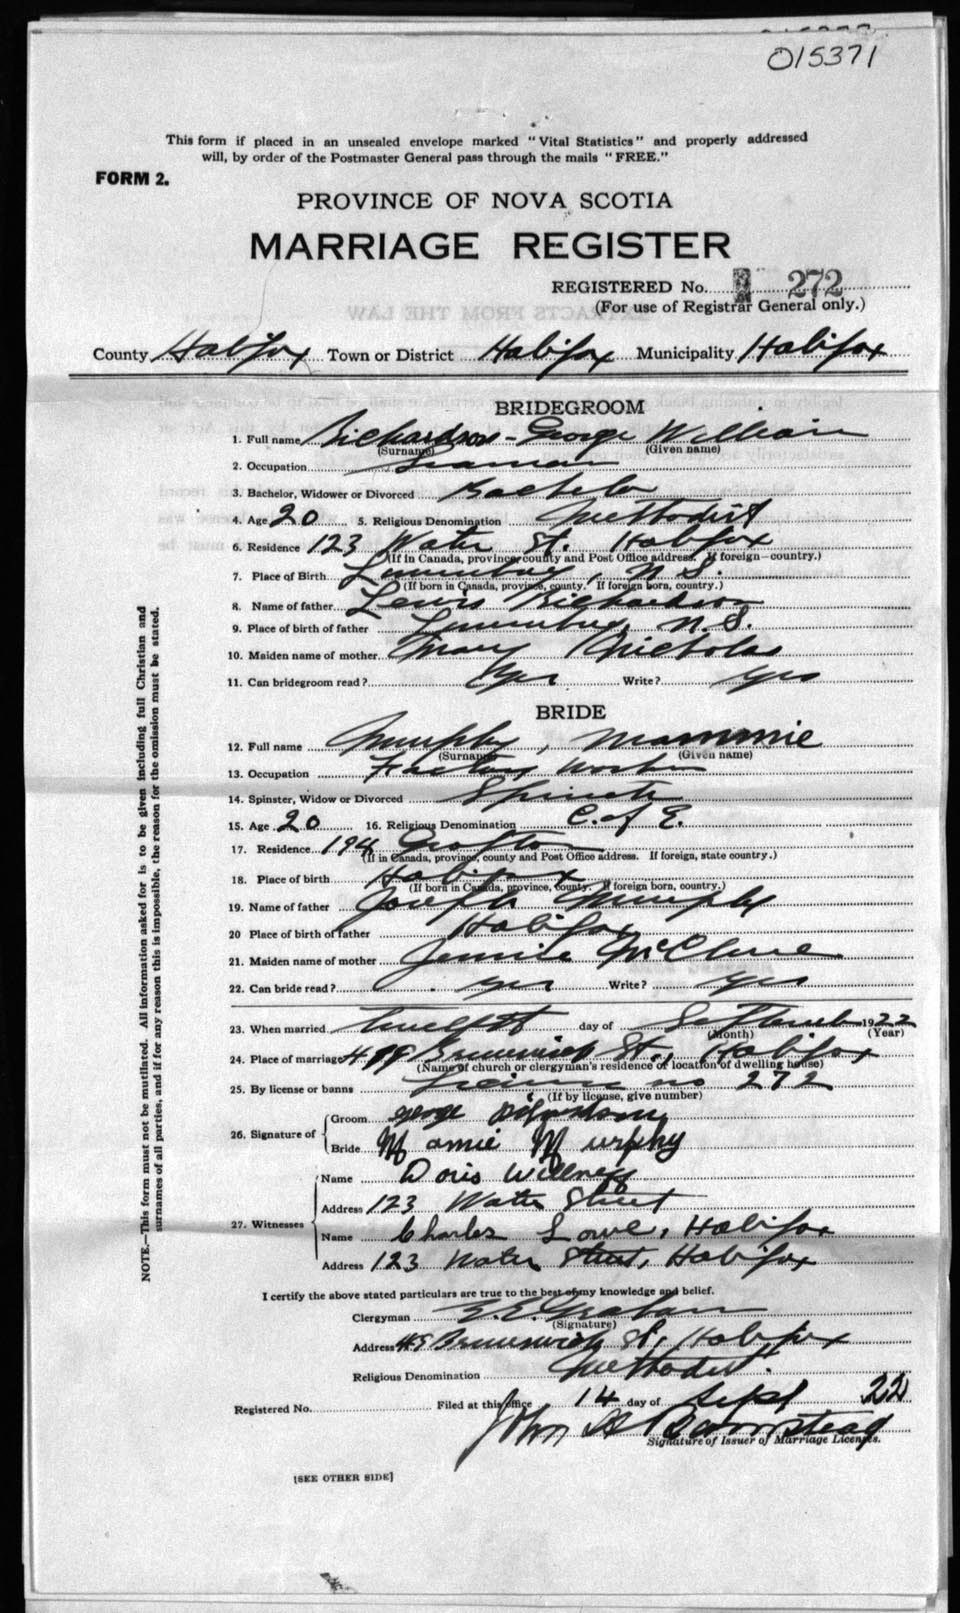 015371
This form if placed in an unsealed envelope marked "Vital Statistics" and properly addressed
will, by order of the Postmaster General pass through the mails "FREE."
FORM 2.
PROVINCE OF NOVA SCOTIA
MARRIAGE REGISTER
REGISTERED No. 272
(For use of Registrar General only.)
County Halifax Town or District Halifax Municipality Halifax
BRIDEGROOM
1. Full name Richardson - George William
(Surname) (Given name)
2. Occupation Seaman
3. Bachelor, Widower or Divorced Bachelor
4. Age 20 5. Religious Denomination Methodist
6. Residence 123 Water St. Halifax
(If in Canada, province, county and Post Office address. If foreign—country.)
7. Place of Birth Lunenburg, N.S.
(If born in Canada, province, county. If foreign born, country.)
8. Name of father Lewis Richardson
9. Place of birth of father Lunenburg, N.S.
10. Maiden name of mother Mary Nicholas
11. Can bridegroom read? Yes Write? Yes
BRIDE
12. Full name Murphy, Mammie
(Surname) (Given name)
13. Occupation Factory Worker
14. Spinster, Widow or Divorced Spinster
15. Age 20 16. Religious Denomination C. of E.
17. Residence 194 Grafton
(If in Canada, province, county and Post Office address. If foreign, state country.)
18. Place of birth Halifax
(If born in Canada, province, county. If foreign born, country.)
19. Name of father Joseph Murphy
20 Place of birth of father Halifax
21. Maiden name of mother Jennie McClure
22. Can bride read? Yes Write? Yes
23. When married Twelfth day of September 1922
(Month) (Year)
24. Place of marriage Brunswick St., Halifax
(Name of church or clergyman's residence or location of dwelling house)
25. By license or banns License no 272
(If by license, give number)
26. Signature of
Groom George
Bride Mamie Murphy
27. Witnesses
Name Doris
Address 123 Water Street
Name Charles Lowe, Halifax
Address 123 Water Street, Halifax
I certify the above stated particulars are true to the best of my knowledge and belief.
Clergyman Graham
(Signature)
Address Brunswick St, Halifax
Religious Denomination Methodist.
Registered No. Filed at this office 14 day of Sept 22
John A Barnstead
Signature of Issuer of Marriage Licenses.
[SEE OTHER SIDE]
NOTE.—This form must not be mutilated. All information asked for is to be given including full Christian and
surnames of all parties, and if for any reason this is impossible, the reason for the omission must be stated.